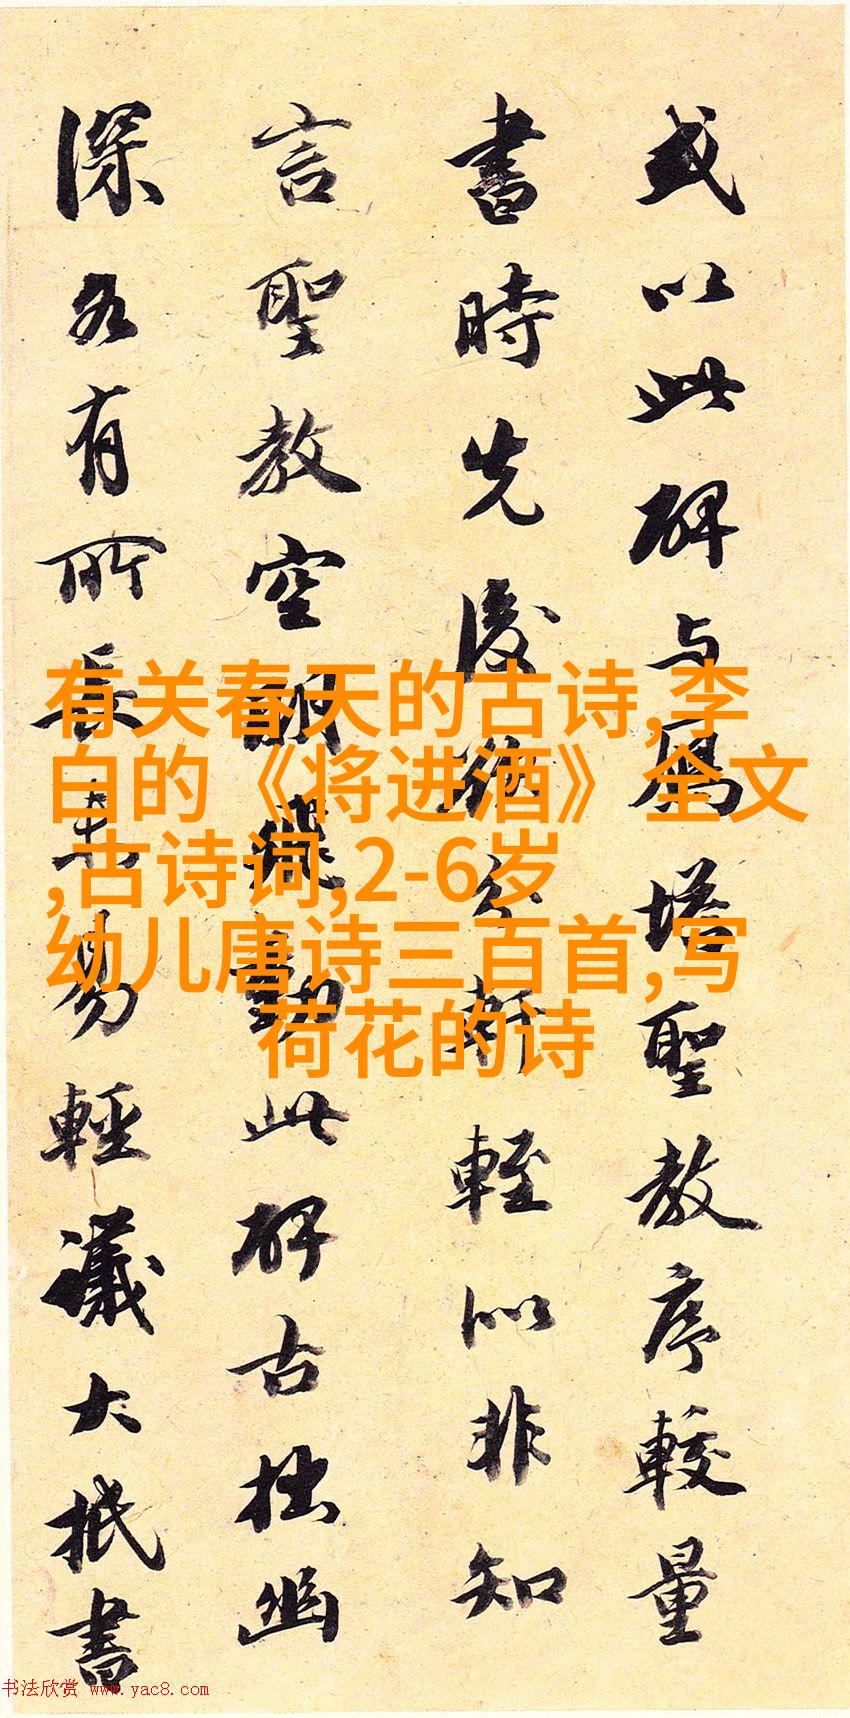 或以此碑与鴈塔聖教序較量
書時先後強分軒輊似非知
言聖教空動此碑古拙幽
深各有所長未易輕議大抵書
有关春天的古诗,李
白的《将进酒》全文
,古诗词,2-6岁
幼儿唐诗三百首,写
荷花的诗
书法欣赏 www.yac8.com